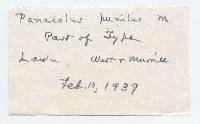 Panaeolus pumilus M
Part of Type
Lawn, West & Murrill
Feb. 11, 1939